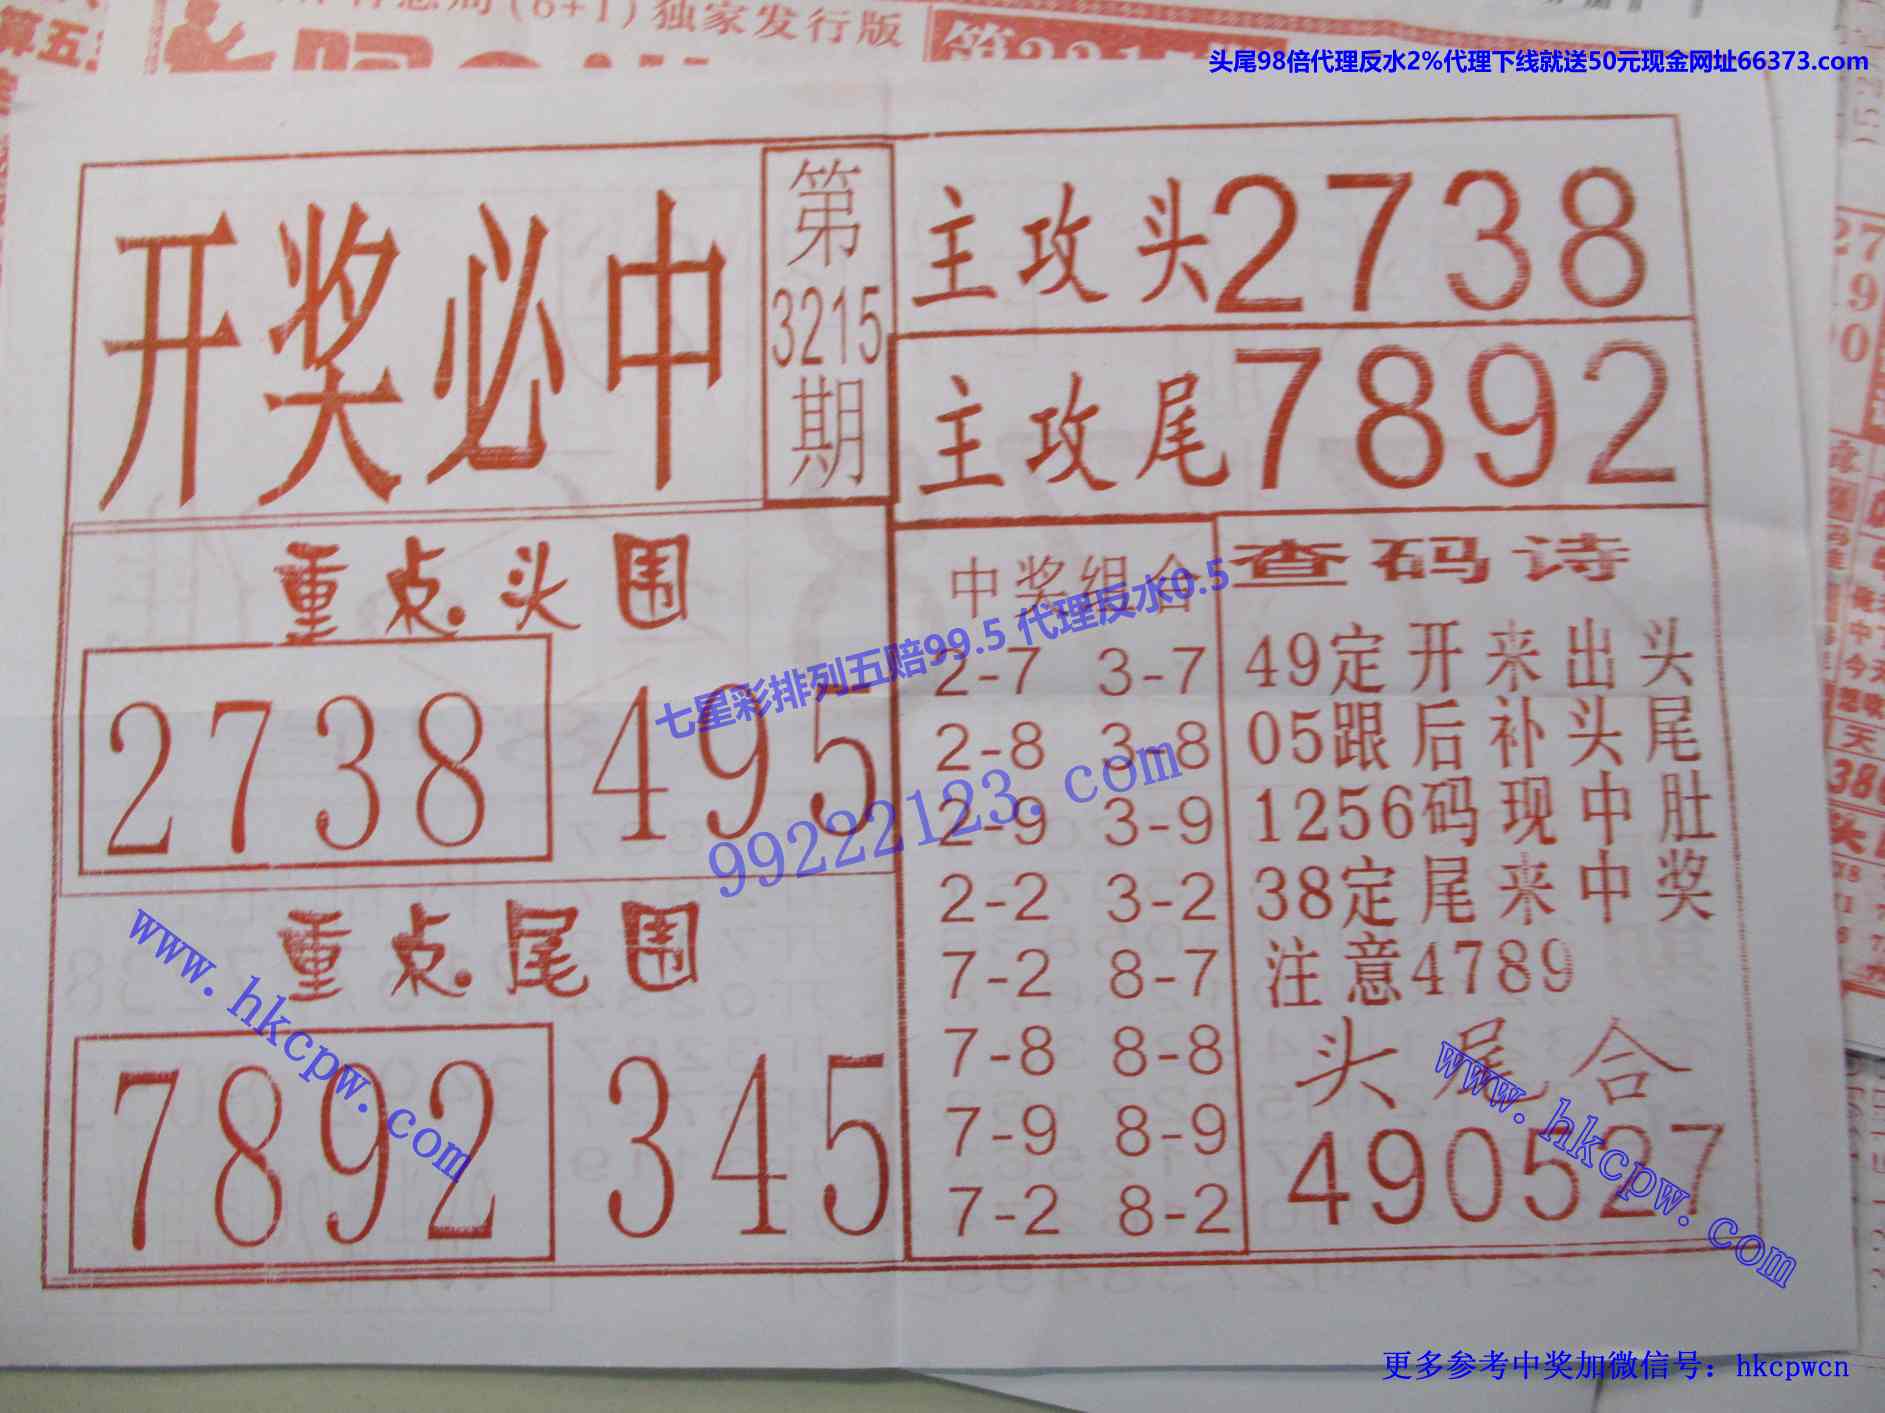 (6+1)独家发行版
头尾98倍代理反水2%代理下线就送50元现金网址66373.com
开奖必中
第
3215
期
主攻头2738
主攻尾7892
重点头围
2738 495
重点尾围
7892 345
中奖组合
2-7 3-7
2-8 3-8
2-9 3-9
2-2 3-2
7-2 8-7
7-8 8-8
7-9 8-9
7-2 8-2
查码诗
49定开来出头
05跟后补头尾
1256码现中肚
38定尾来中奖
注意4789
头尾合
490527
七星彩排列五赔99.5 代理反水0.5
99222123.com
www.hkcpw.com
www.hkcpw.com
更多参考中奖加微信号：hkcpwcn